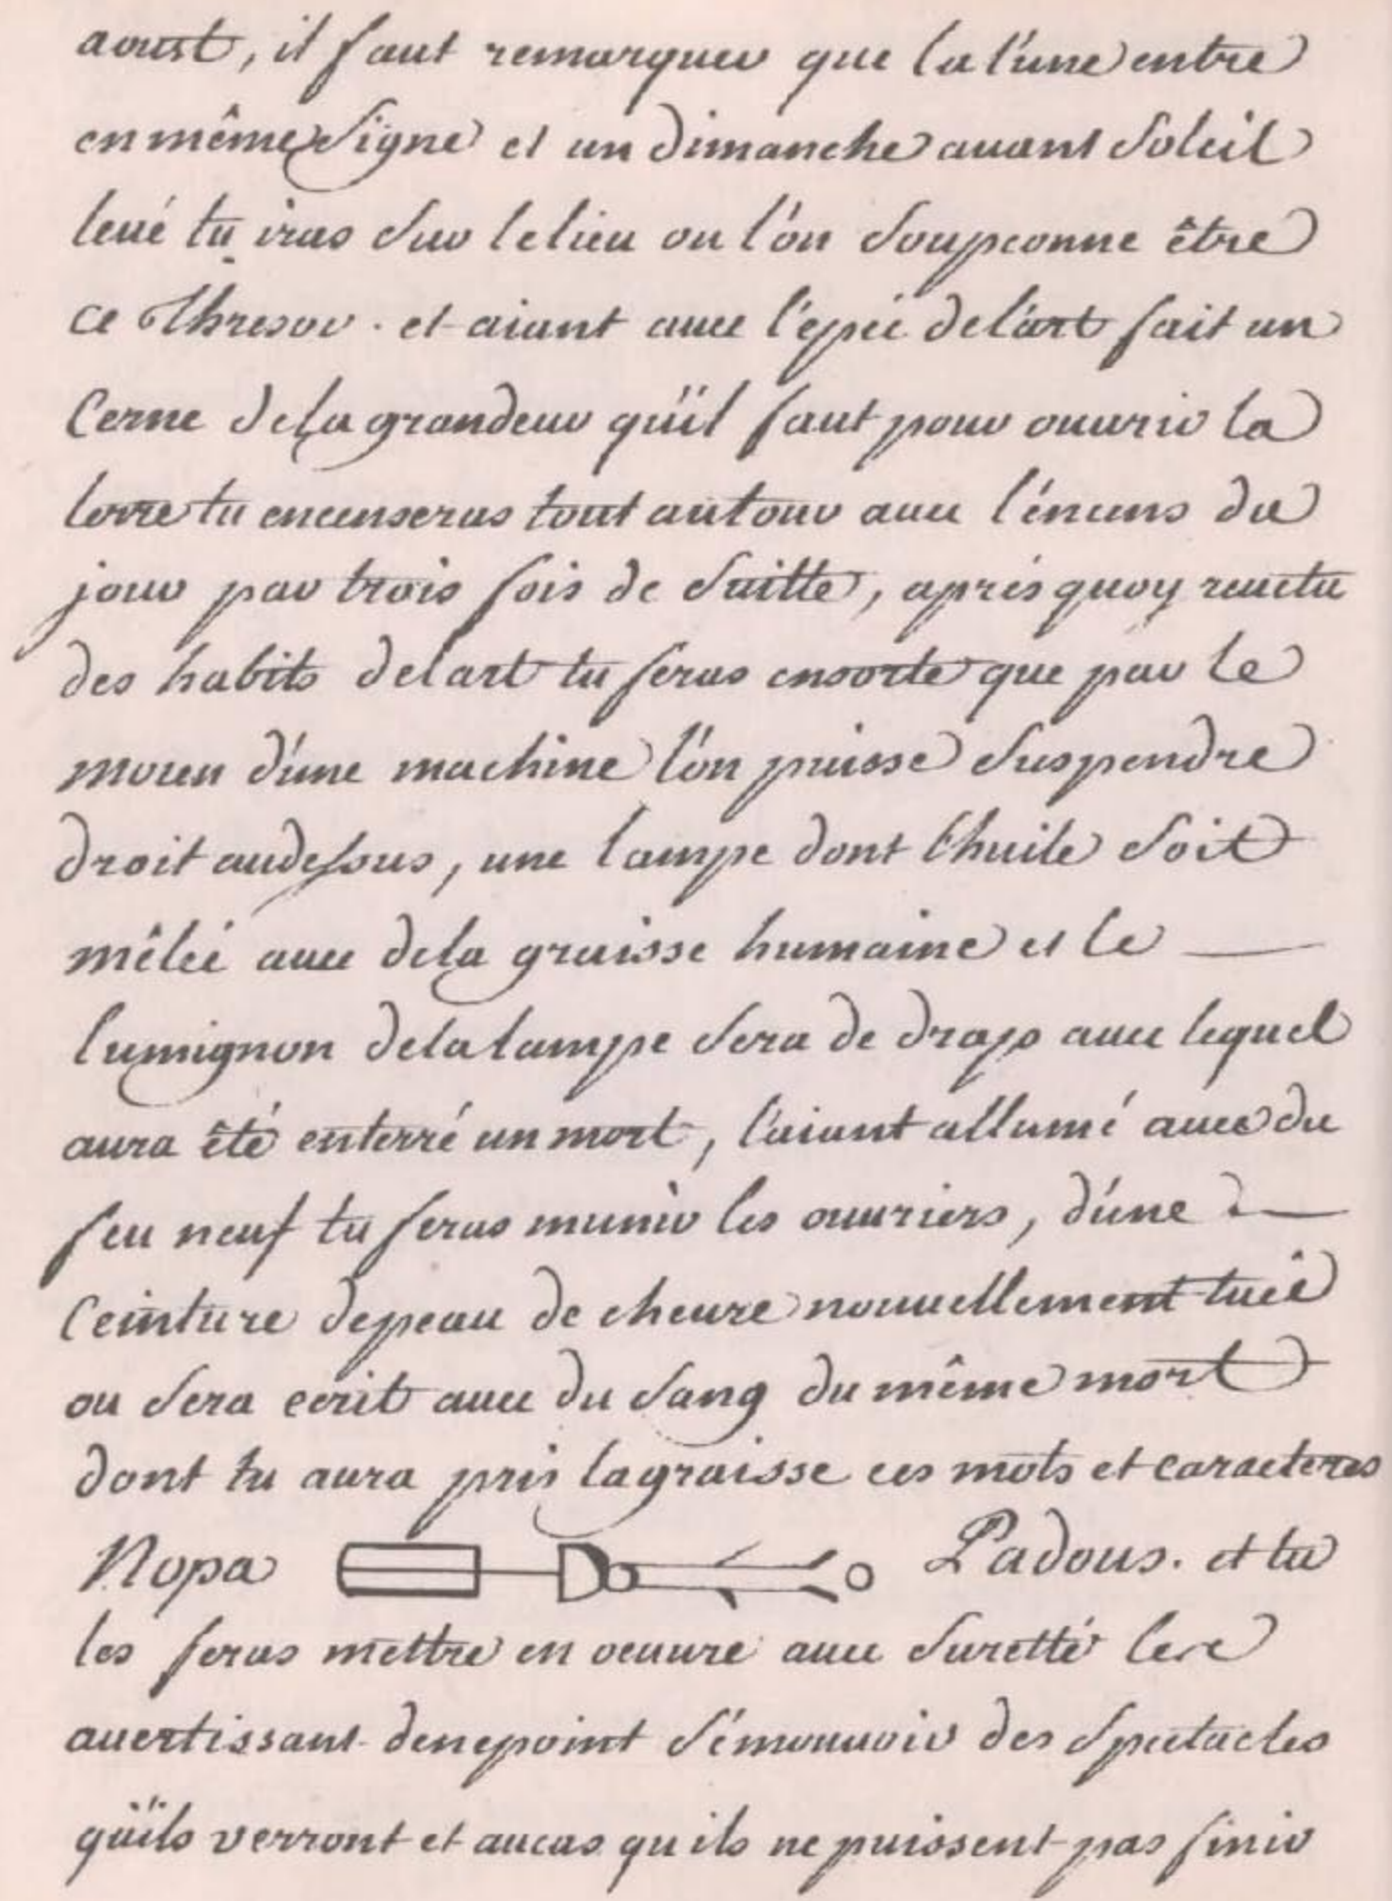 aoust, il faut remarquer que la l'une entre
en même signe et un dimanche auant soleil
leué tu iras sur le lieu ou l'on soupconne être
ce Thresor. et aiant auec l'epée de l'art fait un
Cerne de la grandeur qu'il faut pour ouurir la
terre tu encenseras tout autour auec l'encens du
jour par trois fois de suitte, aprés quoy reuetu
des habits de l'art tu feras ensorte que par le
moien d'une machine l'on puisse suspendre
droit audessus, une lampe dont l'huile soit
mêleé auec dela graisse humaine et le
lumignon dela lampe sera de drap auec lequel
aura été enterré un mort, l'aiant allumé auec du
feu neuf tu feras munir les ouuriers, d'une
Ceinture depeau de cheure nouuellement tueé
ou sera ecrit auec du sang du même mort
dont tu aura pris la graisse ces mots et caracteres
Nopa Padous. et tu
les feras mettre en oeuure auec suretté les
auertissant denepoint s'émouuoir des spectacles
qu'ils verront et aucas qu'ils ne puissent pas finir